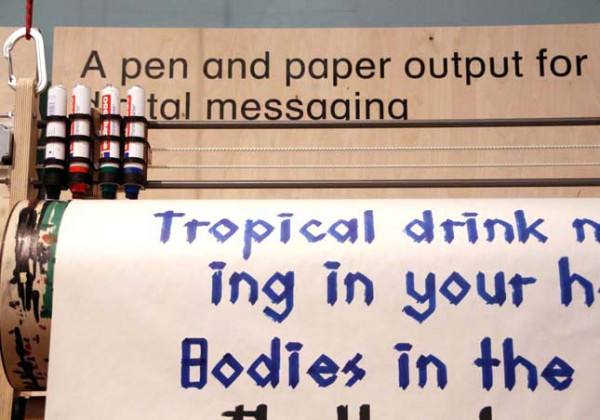 A pen and paper output for
digital messaging
Tropical drink
ing in your
Bodies in the